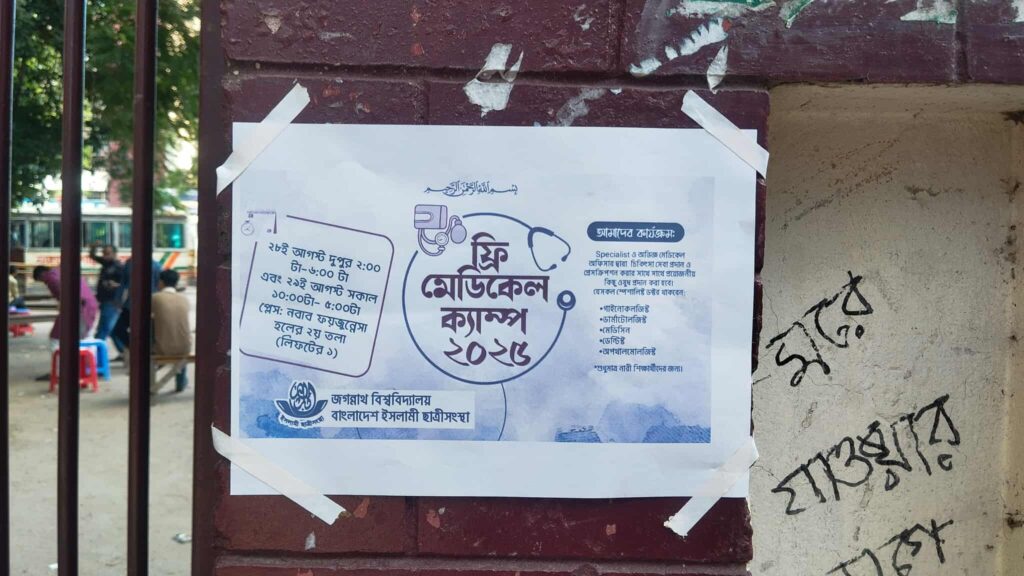 بسم الله الرحمن الرحيم
২৮ই আগস্ট দুপুর ২:০০
টা-৬:০০ টা
এবং ২৯ই আগস্ট সকাল
১০:০০টা- ৫:০০টা
প্লেস: নবাব ফয়জুন্নেসা
হলের ২য় তলা
(লিফটের ১)
ফ্রি
মেডিকেল
ক্যাম্প
২০২৫
আমাদের কার্যক্রম:
Specialist ও অভিজ্ঞ মেডিকেল
অফিসার দ্বারা চিকিৎসা সেবা প্রদান ও
প্রেসক্রিপশন করার সাথে সাথে প্রয়োজনীয়
কিছু ওষুধ প্রদান করা হবে।
যেসকল স্পেশালিষ্ট ডক্টর থাকবেন:
•গাইনোকলজিস্ট
•ডার্মাটোলজিস্ট
•মেডিসিন
•ডেন্টিস্ট
•অপথালমোলজিস্ট
*শুধুমাত্র নারী শিক্ষার্থীদের জন্য।
ইসলামী ছাত্রীসংস্থা
জগন্নাথ বিশ্ববিদ্যালয়
বাংলাদেশ ইসলামী ছাত্রীসংস্থা
মরে
যাওয়ার